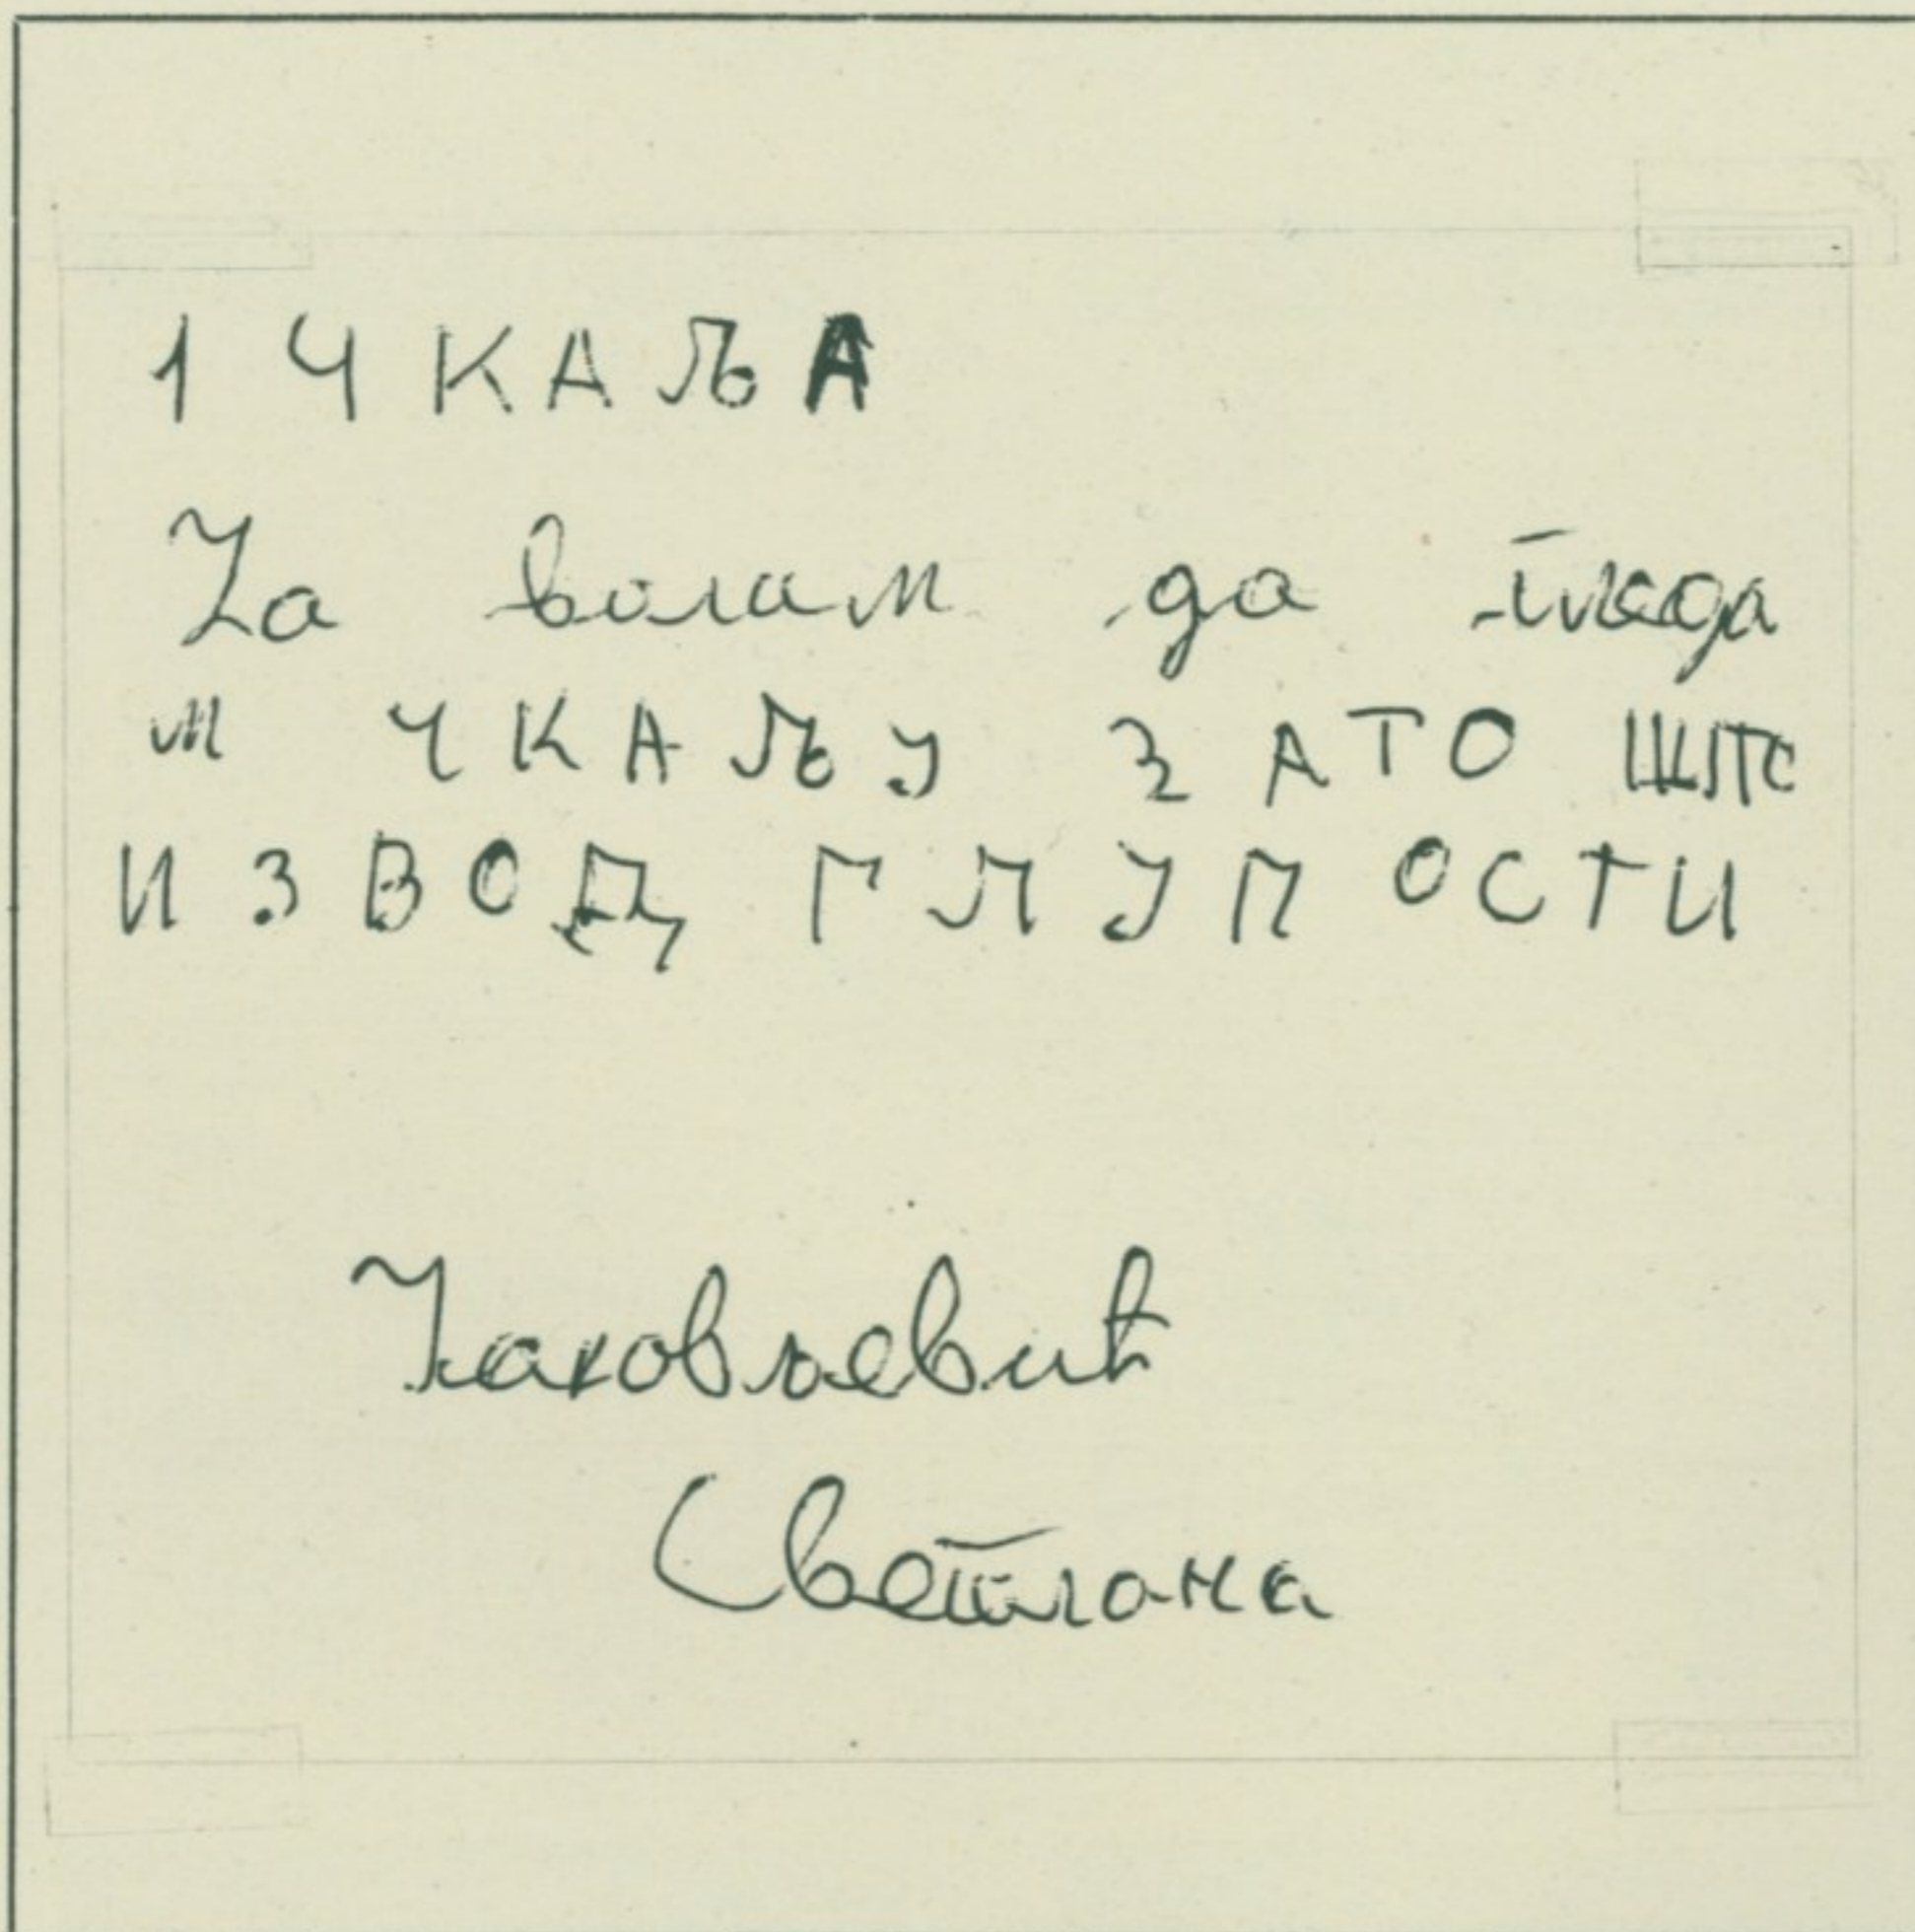 1 ЧКАЉА
Ја волам да гледа
м ЧКАЉУ ЗАТО ШТО
ИЗВОД ГЛУПОСТИ
Јаковљевић
Светлана